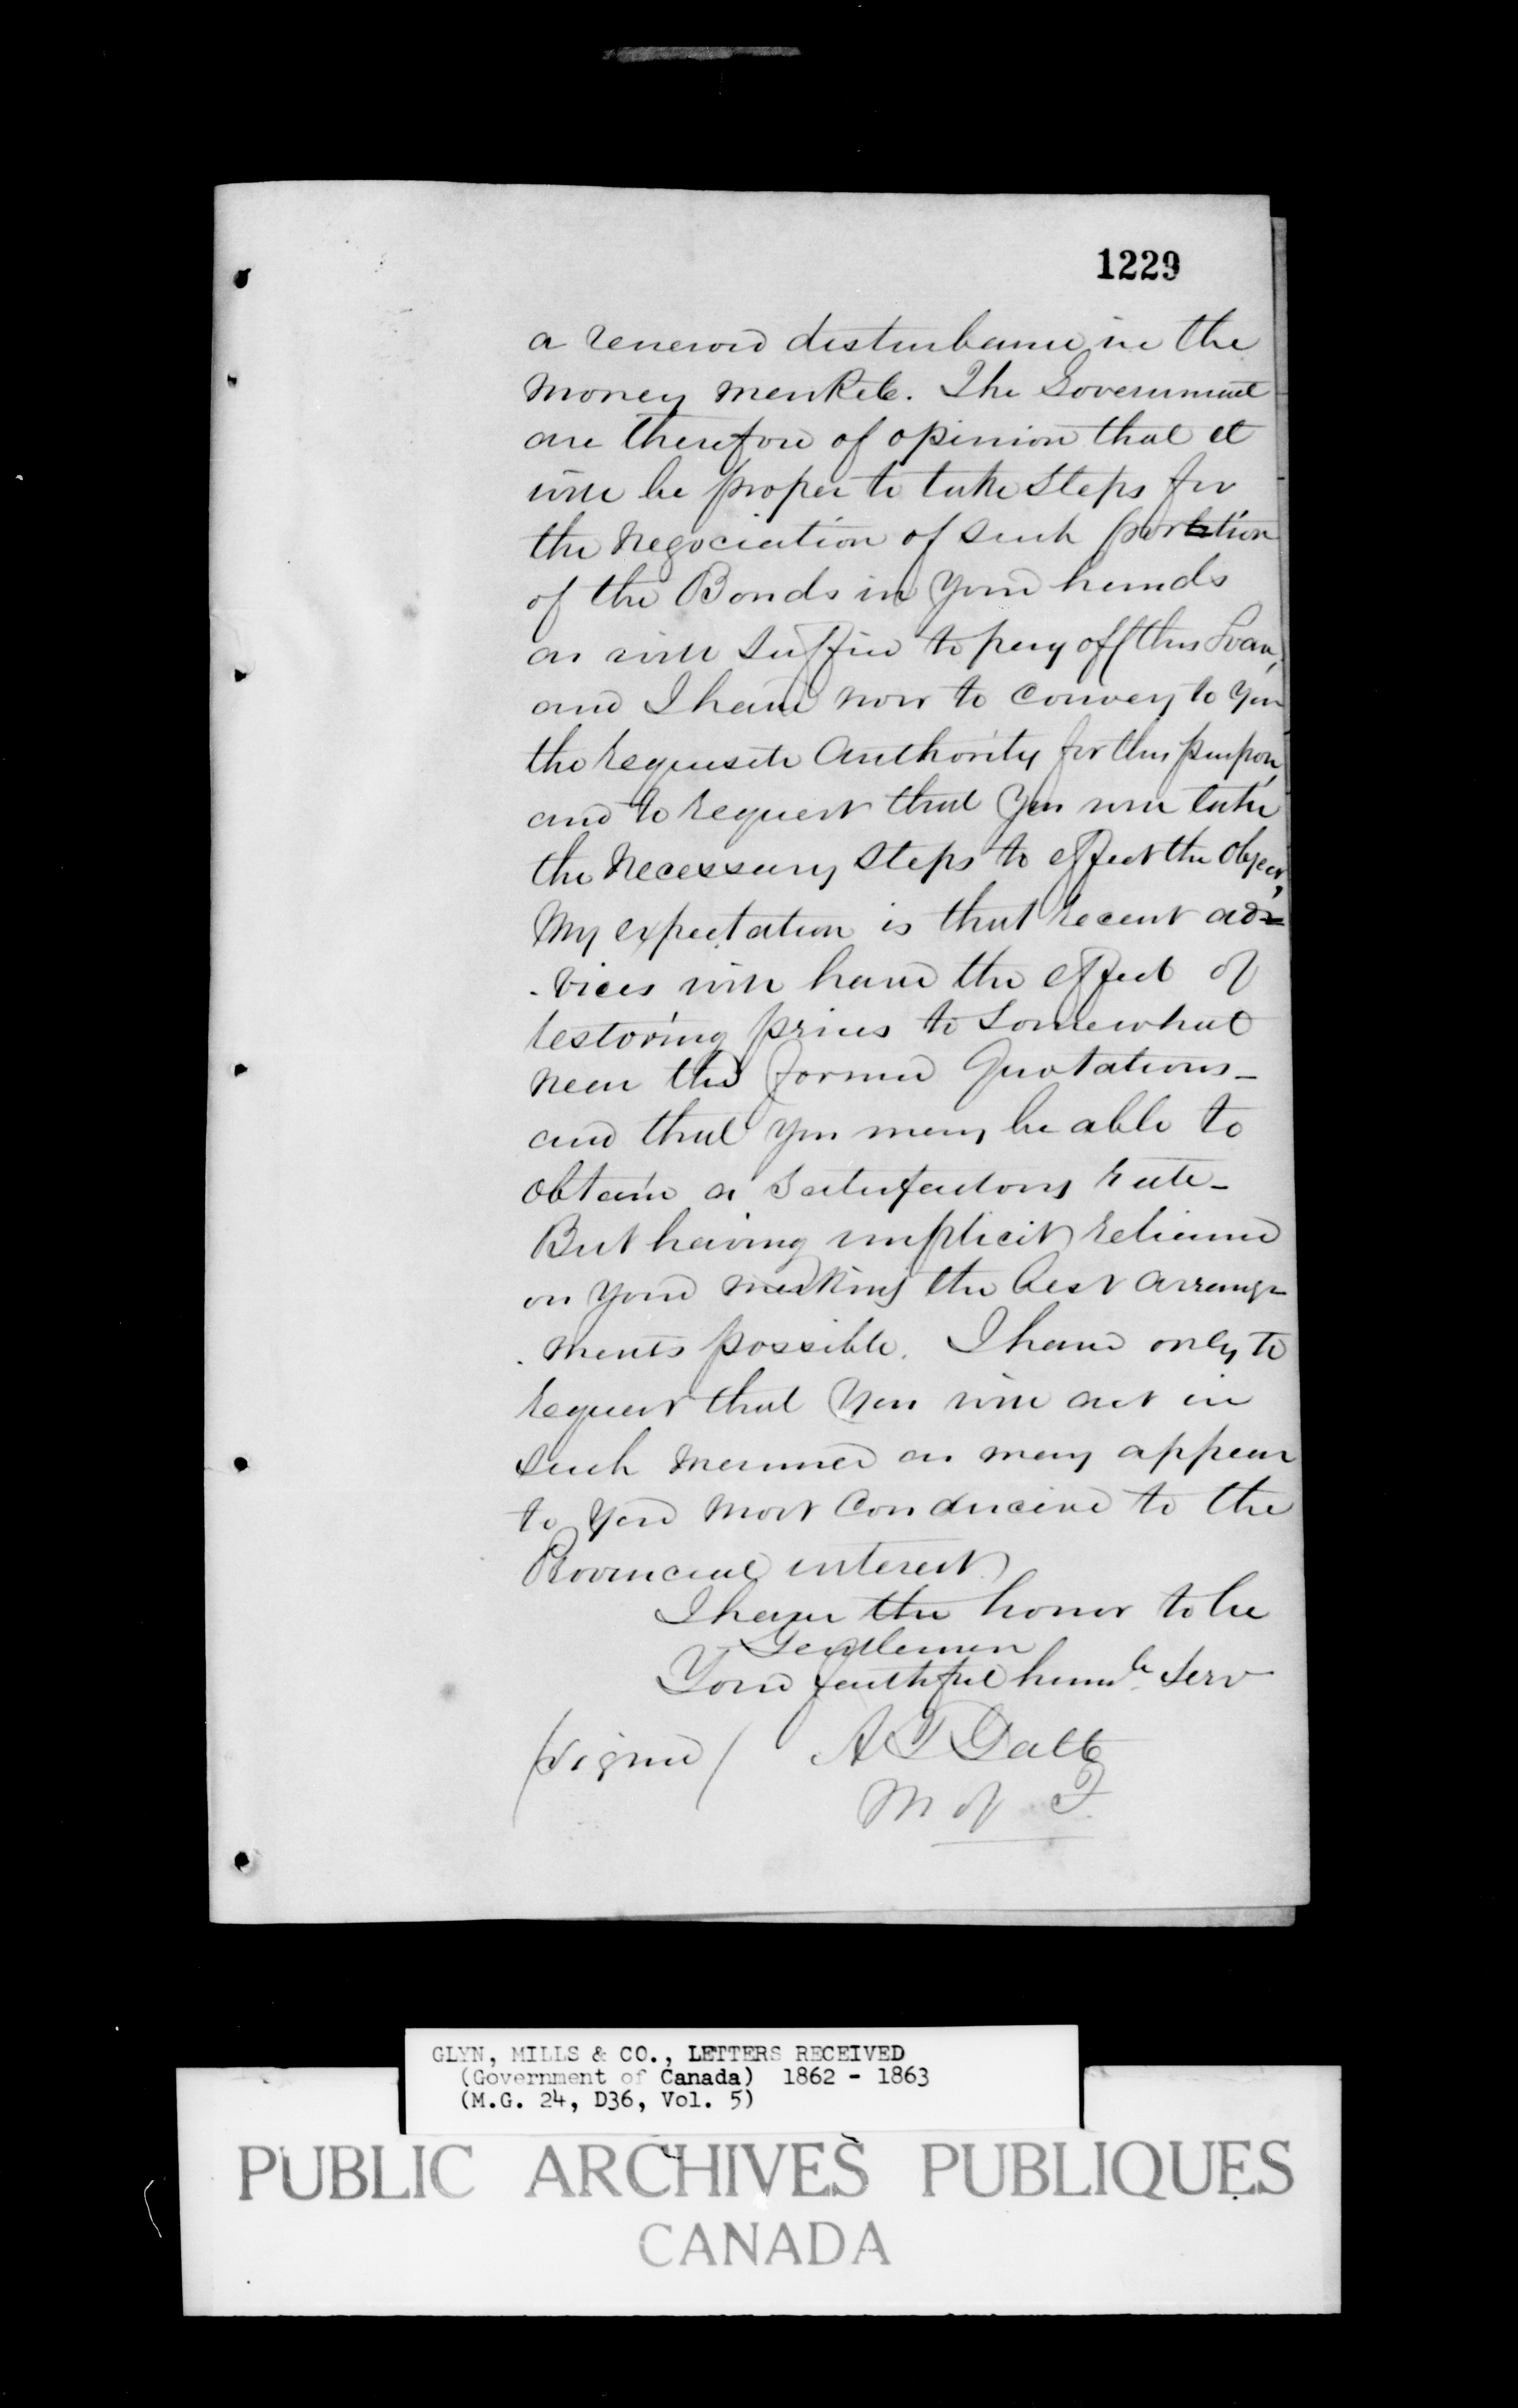 1229
a renewed disturbance in the
Money Market. The Government
are therefore of opinion that it
will be proper to take Steps for
the Negociation of such portion
of the Bonds in your hands
as will Suffice to pay off this Loan,
and I have now to convey to you
the requisite Authority for this purpose,
and to request that you will take
the Necessary Steps to effect the Object,
My expectation is that recent ad=
-vices will have the effect of
restoring prices to Somewhat
near the former Quotations_
and that you may be able to
obtain a Satisfactory rate_
But having implicit reliance
on your making the best arrange
-ments possible. I have only to
request that you will act in
Such Manner as may appear
to you Most Conducive to the
Provincial interest.
I have the honor to be
Gentlemen
Your faithful humle Serv
(signed) A T Galt
M of F.
GLYN, MILLS & CO., LETTERS RECEIVED
(Government of Canada) 1862 - 1863
(M.G. 24, D36, Vol. 5)
PUBLIC ARCHIVES PUBLIQUES
CANADA